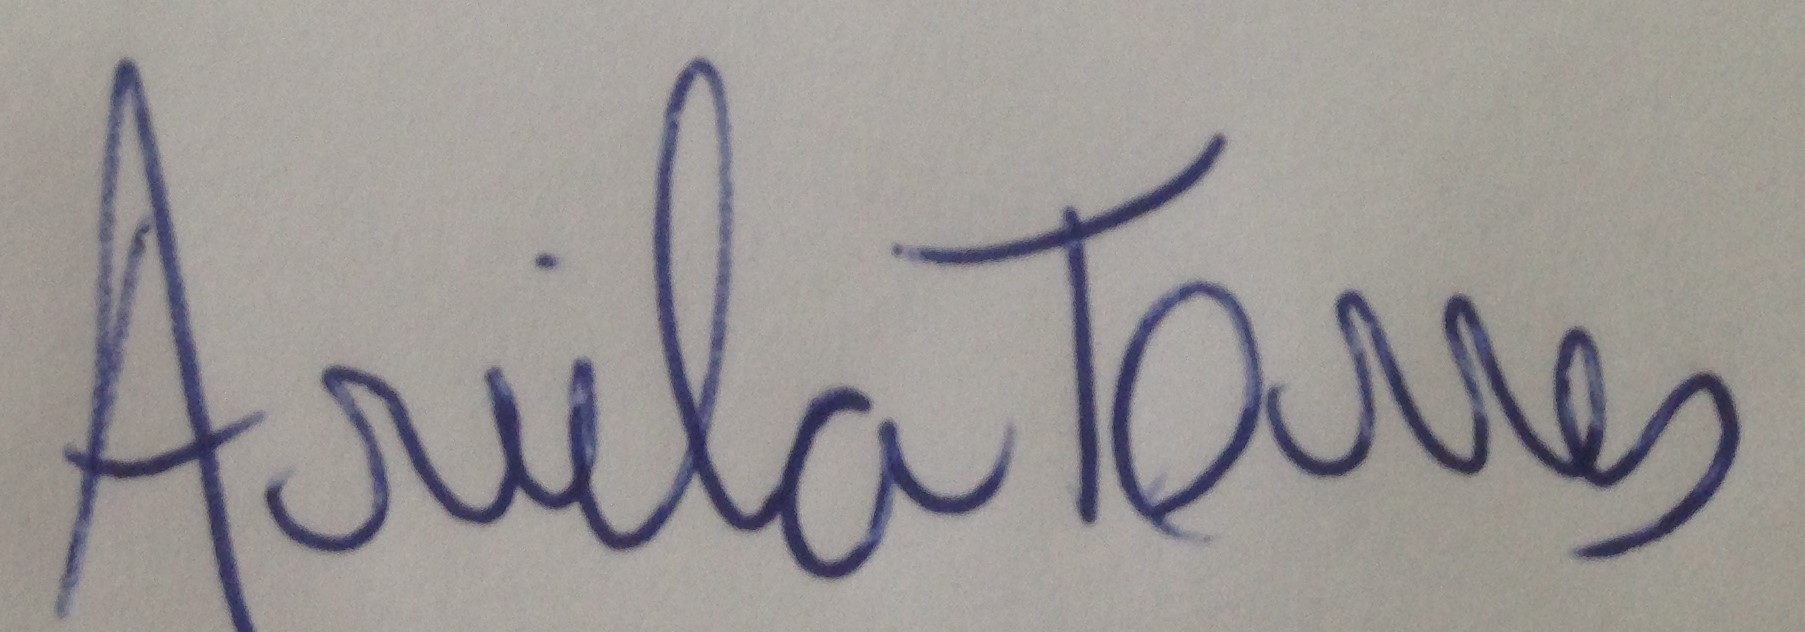 Ariela Torres